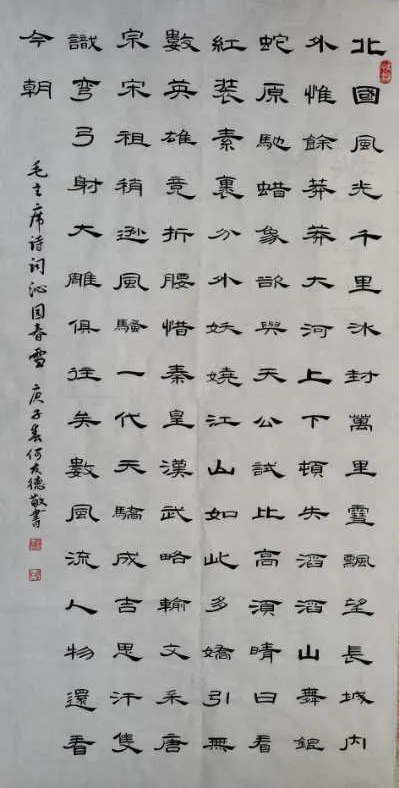 北國風光千里冰封萬里雪飄望長城内
外惟餘莽莽大河上下頓失滔滔山舞銀
蛇原馳蜡象欲與天公試比高須晴日看
紅裝素裹分外妖嬈江山如此多嬌引無
數英雄竞折腰惜秦皇漢武略輸文采唐
宗宋祖稍遜風騷一代天驕成吉思汗隻
識彎弓射大雕俱往矣數風流人物還看
今朝
毛主席诗词沁园春雪 庚子春何友德敬書